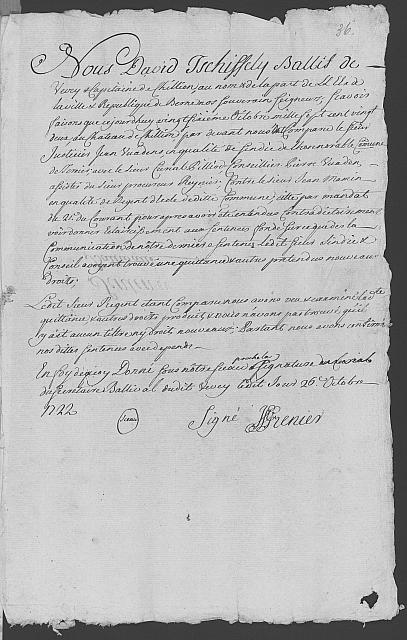 36.
Nous David Tschiffely Ballif de
Vevey & Capitaine de Chillion au nom & de la part de LL EE de
la ville & Republique de Berne nos Souverain Seigneurs, Scavoir
faisons que ce jourdhuy vingt sixieme Octobre mille sept cent vingt
deux, du Chateau de Chillion par devant nous Est Comparu le Sieur
Justicier Jean Vuadens en qualité de Sindic de l'honorable Comune
de avec le Sieur Conseillier Pierre Vuaden,
assistés du Sieur procureur Reynier; Contre le Sieur Jean Mamin
en qualité de Regent d'Ecole de dite Commune, citté par mandat
de 21e du Courant pour apres avoir été entendus Contradictoirement
voir donner Eclaircissement aux Sentences Cond. sur ce que des la
Communication de nôtre derniere Sentence Ledit Sieur Sindic &
Conseil auroyent trouvé une quittance & autres pretendus nouveaux
droits.
Ledit Sieur Regent étant Comparu nous avons vu & examiné Ladte
quittance & autres droits produit, & nous n'avons pas trouvé qu'il
y ait aucun tiltre ny droit nouveaux; Partant nous avons confirmé
nos dittes Sentences avec depends.
En foy dequoy Donné sous nôtre Sceau & Signature
du Secretaire Ballival dudit Vevey Ledit Jour 26 Octobre
1722
Sceau
Signé Grenier